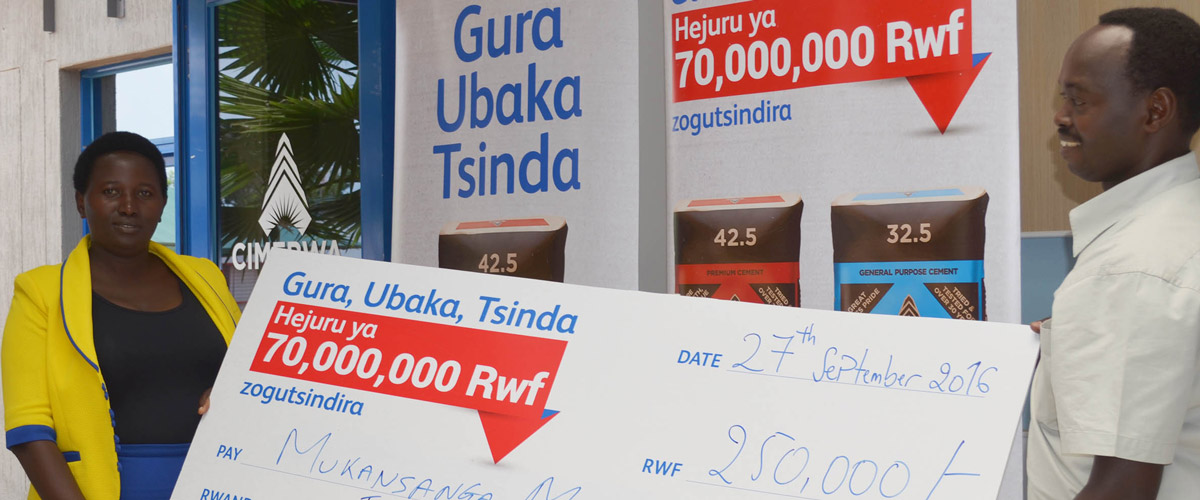 Gura
Ubaka
Tsinda
42.5
Hejuru ya
70,000,000 Rwf
zogutsindira
42.5
PREMIUM CEMENT
32.5
GENERAL PURPOSE CEMENT
TRIED &
TESTED FOR
OVER 30
CIMERWA
Gura, Ubaka, Tsinda
Hejuru ya
70,000,000 Rwf
zogutsindira
DATE 27th September 2016
PAY MUKANSANGA
RWF 250,000/-